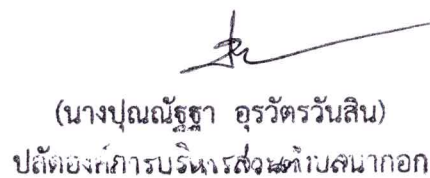 (นางปุณณัฐฐา อุรวัตรวันสิน)
ปลัดองค์การบริหารส่วนตำบลนากอก